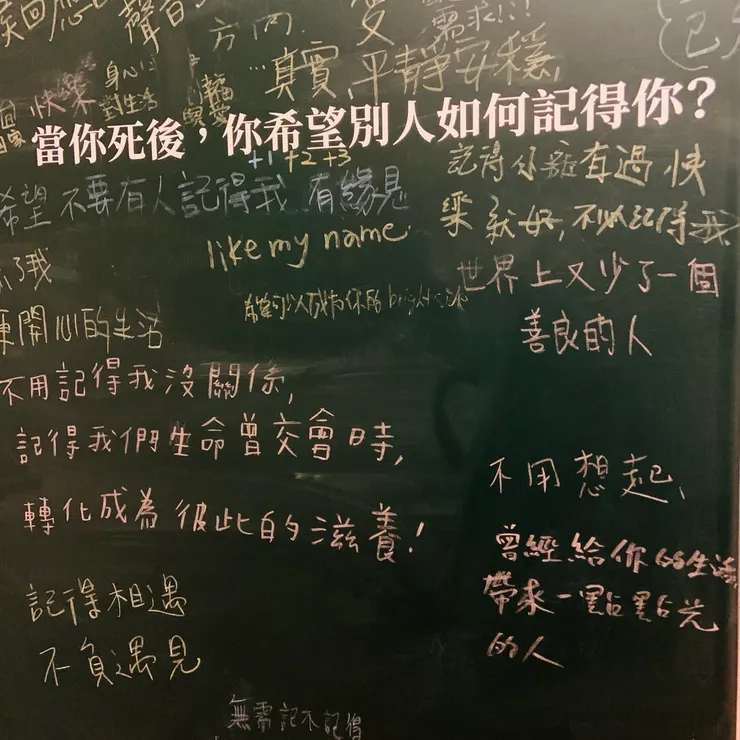 回應
聲音
方向
愛
需求!!!
…真實,平靜安穩,
快樂
身心
對生活
當你死後,你希望別人如何記得你?
+1 +2 +3
希望 不要有人記得我 有緣見
like my name
記得小
有過快
樂就好,不必記得我
了我
開心的生活
世界上又少了一個
善良的人
不用記得我沒關係,
記得我們生命曾交會時,
轉化成為彼此的滋養!
不用想起、
曾經給你的生活
帶來一點點光
的人
記得相遇
不負遇見
無需記不記得